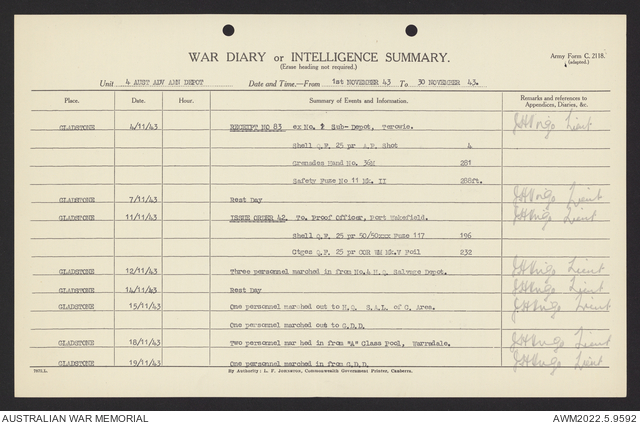 WAR DIARY or INTELLIGENCE SUMMARY.
(Erase heading not required.)
Army Form C. 2118.
(adapted.)
Unit 4 AUST ADV AMN DEPOT Date and Time.—From 1st NOVEMBER 43 To 30 NOVEMBER 43.
Place. Date. Hour. Summary of Events and Information. Remarks and references to Appendices, Diaries, &c.
GLADSTONE 4/11/43 RECEIPT NO 83 ex No. 1 Sub-Depot, Terowie. Lieut
Shell Q.F. 25 pr A.P. Shot 4
Grenades Hand No. 36M 281
Safety Fuze No 11 Mk. II 288ft.
GLADSTONE 7/11/43 Rest Day Lieut
GLADSTONE 11/11/43 ISSUE ORDER 42. To Proof Officer, Port Wakefield. Lieut
Shell Q.F. 25 pr 50/50xxx Fuze 117 196
Ctges Q.F. 25 pr COR NM Mk.V Foil 232
GLADSTONE 12/11/43 Three personnel marched in from No.4 H.Q. Salvage Depot. Lieut
GLADSTONE 14/11/43 Rest Day Lieut
GLADSTONE 15/11/43 One personnel marched out to H.Q. S.A.L. of C. Area. Lieut
One personnel marched out to G.D.D.
GLADSTONE 18/11/43 Two personnel mar hed in from "A" Class Pool, Warradale. Lieut
GLADSTONE 19/11/43 One personnel marched in from G.D.D. Lieut
By Authority: L. F. Johnston, Commonwealth Government Printer, Canberra.
AUSTRALIAN WAR MEMORIAL AWM2022.5.9592